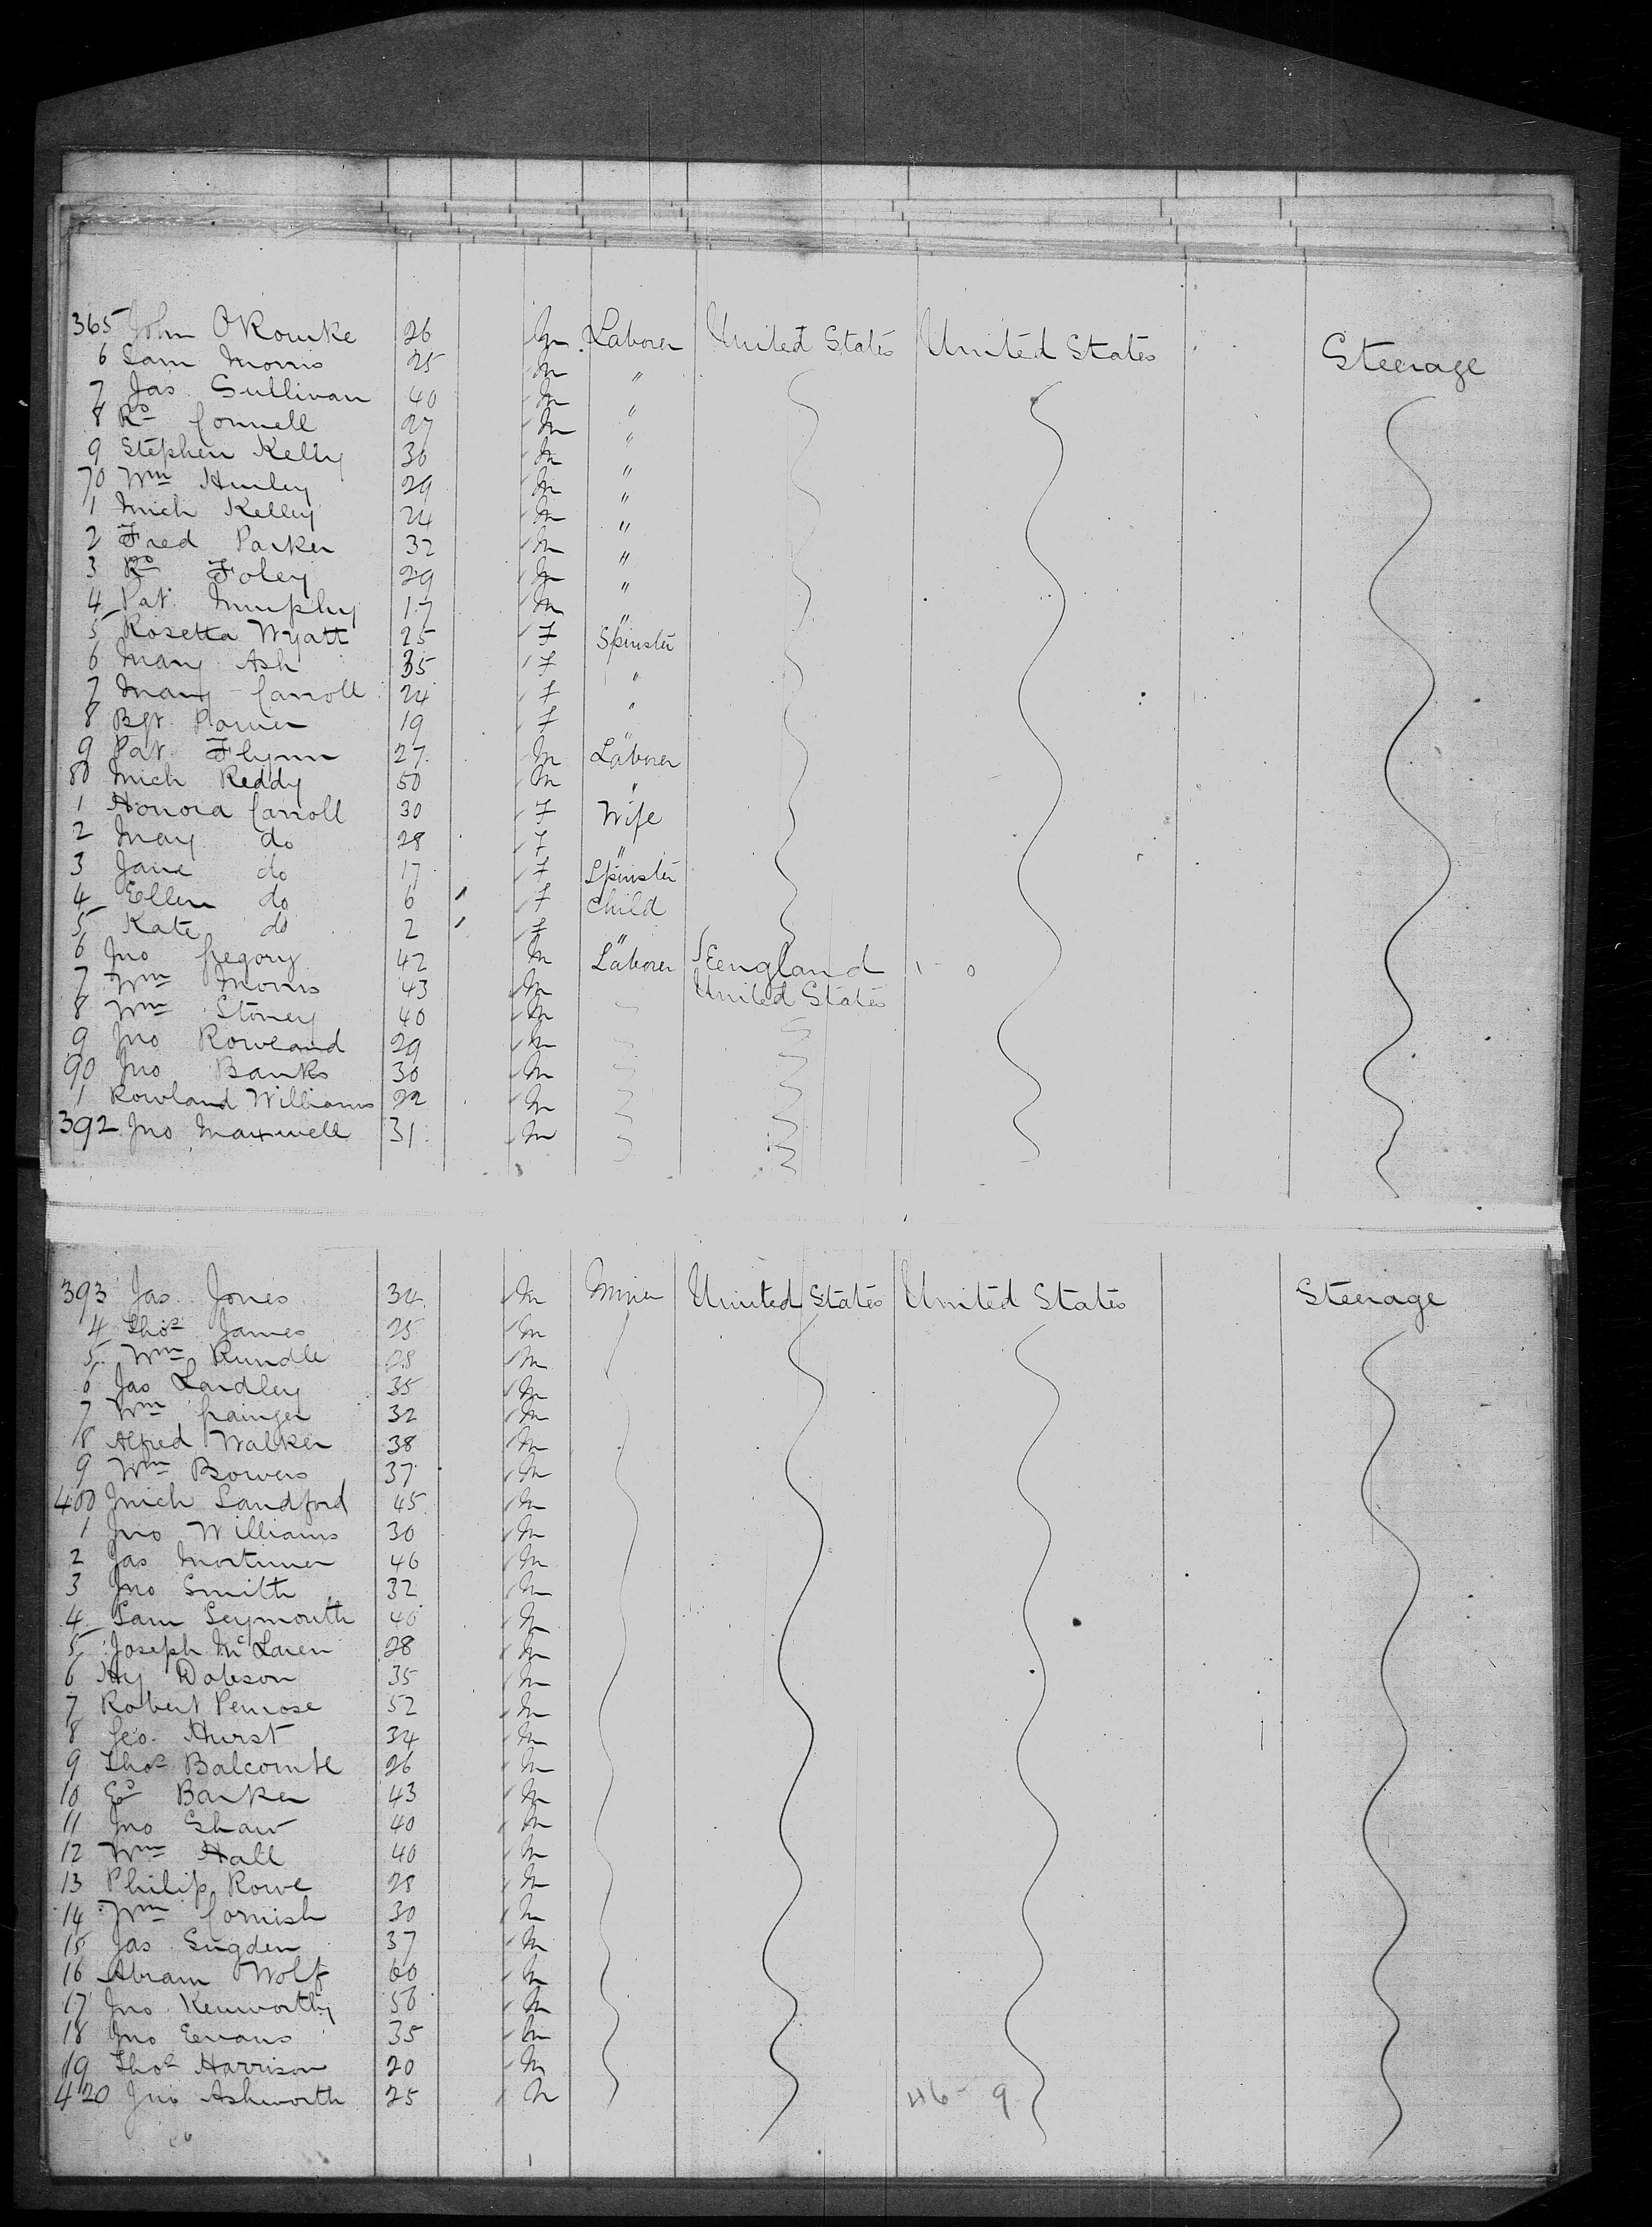 365 John O'Rourke 26 M Laborer United States United States Steerage
6 Sam Morris 25 M "
7 Jas Sullivan 40 M "
8 Rd Connell 27 M "
9 Stephen Kelly 30 M "
70 Wm Hurley 29 M "
1 Mich Kelley 24 M "
2 Fred Parker 32 M "
3 Rd Foley 29 M "
4 Pat Murphy 17 M "
5 Rosetta Wyatt 25 F Spinster
6 Mary Ash 35 F "
7 Mary Carroll 24 F "
8 Bgt Power 19 F "
9 Pat Flynn 27 M Laborer
80 Mich Reddy 50 M "
1 Honora Carroll 30 F Wife
2 Mary do 28 F "
3 Jane do 17 F Spinster
4 Ellen do 6 F Child
5 Kate do 2 F "
6 Jno Gregory 42 M Laborer England
7 Wm Morris 43 M United States
8 Wm Stoney 40 M
9 Jno Rowland 29 M
90 Jno Banks 30 M
1 Rowland Williams 22 M
392 Jno Maxwell 31 M
393 Jas Jones 34 M Miner United States United States Steerage
4 Thos James 25 M
5 Wm Rundle 28 M
6 Jas Lardley 35 M
7 Wm Grainger 32 M
8 Alfred Walker 38 M
9 Wm Bowers 37 M
400 Mich Sandford 45 M
1 Jno Williams 30 M
2 Jas Mortimer 46 M
3 Jno Smith 32 M
4 Sam Seymouth 40 M
5 Joseph McLaren 28 M
6 Hy Dobson 35 M
7 Robert Penrose 52 M
8 Geo. Hurst 34 M
9 Thos Balcombe 26 M
10 Ed Barker 43 M
11 Jno Shaw 40 M
12 Wm Hall 40 M
13 Philip Rowe 28 M
14 Wm Cornish 30 M
15 Jas Sugden 37 M
16 Abram Wolf 60 M
17 Jno Kenworthy 50 M
18 Jno Eevans 35 M
19 Thos Harrison 20 M
420 Jno Ashworth 25 M 46 - 9